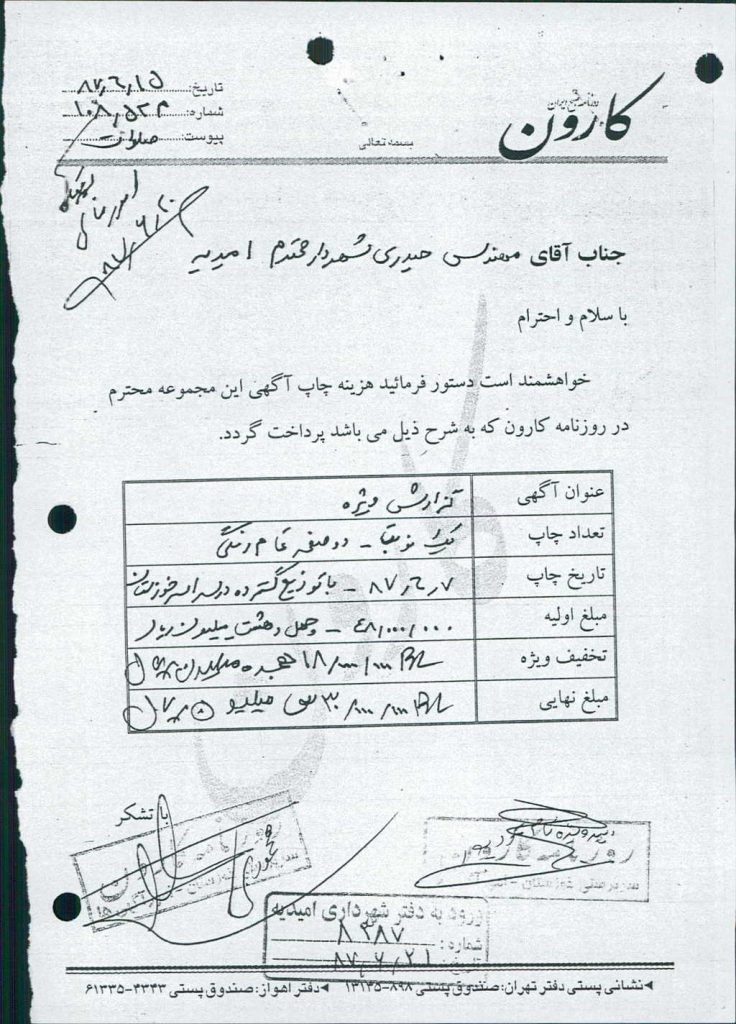 روزنامه صبح ایران
کارون
بسمه تعالی
تاریخ: ۸۷٫۶٫۱۵
شماره: ۱۰۸٫۵۲۳
پیوست:
امور مالی
۸۷/۶/۲۰
جناب آقای مهندس حیدری شهردار محترم امیدیه
با سلام و احترام
خواهشمند است دستور فرمائید هزینه چاپ آگهی این مجموعه محترم
در روزنامه کارون که به شرح ذیل می باشد پرداخت گردد.
عنوان آگهی گزارش ویژه
تعداد چاپ یک نوبت - دو صفحه تمام رنگی
تاریخ چاپ ۸۷٫۶٫۷ - با توزیع گسترده در سراسر خوزستان
مبلغ اولیه ۴۸/۰۰۰/۰۰۰ - چهل و هشت میلیون ریال
تخفیف ویژه ۱۸/۰۰۰/۰۰۰ ریال هجده میلیون ریال
مبلغ نهایی ۳۰/۰۰۰/۰۰۰ ریال سی میلیون ریال
با تشکر
ورود به دفتر شهرداری امیدیه
شماره: ۸۳۸۷
تاریخ: ۸۷/۶/۲۱
◄نشانی پستی دفتر تهران: صندوق پستی ۸۹۸-۱۳۱۴۵ ◄دفتر اهواز: صندوق پستی ۴۳۴۳-۶۱۳۳۵